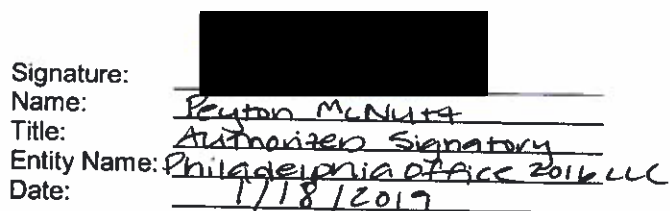 Signature:
Name: Peyton McNutt
Title: Authorized Signatory
Entity Name: Philadelphia Office 2016 LLC
Date: 1/18/2019